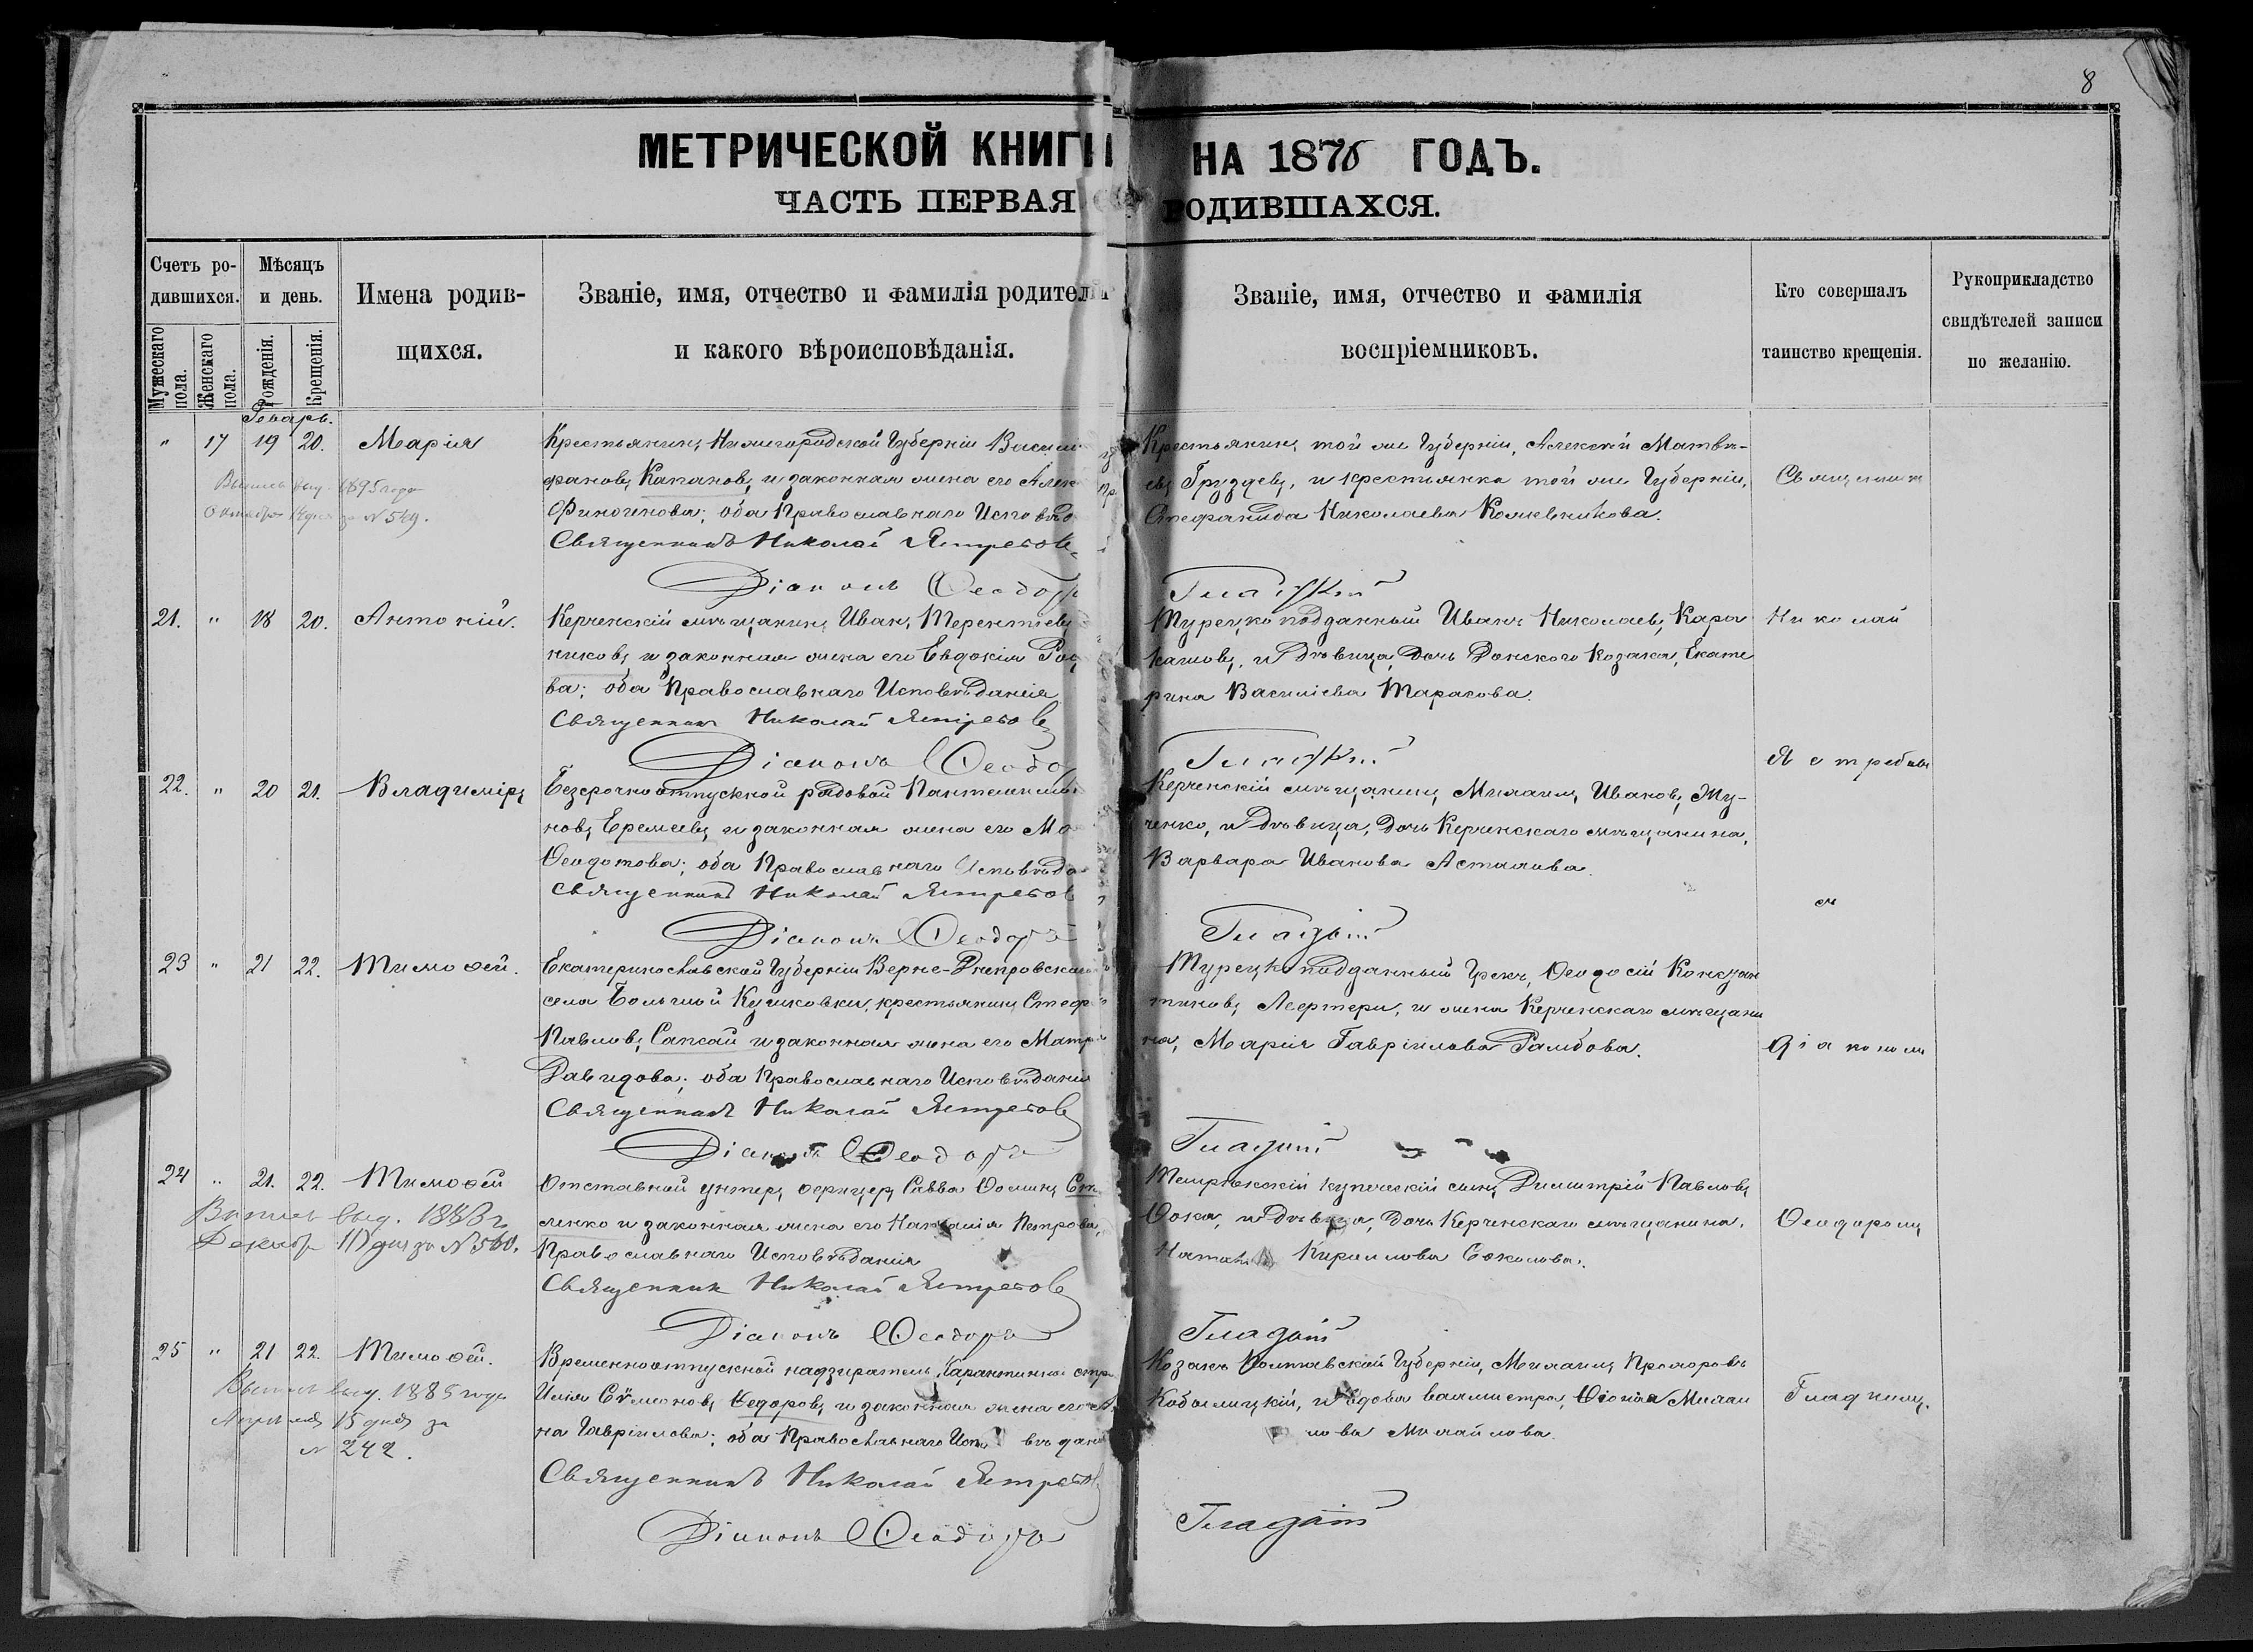 8
МЕТРИЧЕСКОЙ КНИГИ НА 1876 ГОДЪ.
ЧАСТЬ ПЕРВАЯ О РОДИВШАХСЯ.
Счетъ ро-
дившихся.
Мужескаго пола.
Женскаго пола.
Мѣсяцъ
и день.
Рожденія.
Крещенія.
Имена родив-
щихся.
Званіе, имя, отчество и фамилія родителе
и какого вѣроисповѣданія.
Званіе, имя, отчество и фамилія
воспріемниковъ.
Кто совершалъ
таинство крещенія.
Рукоприкладство
свидѣтелей записи
по желанію.
Генварь.
" 17 19 20. Марія
Крестьянинъ Нижегородской Губерніи
фановъ Катановъ и законная жена его Алек
Финогенова; оба Православнаго Исповѣд
Священникъ Николай Ястребов
Діаконъ Ѳеодор
Крестьянинъ той же Губерніи, Алексѣй Матвѣ-
евъ Груздевъ, и крестьянка той же Губерніи,
Стефанида Николаева Кожевникова.
Гладкій
Священник
октября за № 549.
21. " 18 20. Антоній.
Керченскій мѣщанинъ Иванъ Терентіевъ
никовъ и законная жена его Евдокія
ва; оба Православнаго Исповѣданія
Священникъ Николай Ястребов
Діаконъ Ѳеодо
Турецко подданный Иванъ Николаевъ Кара
кашовъ, и Дѣвица, Дочь Донского Козака, Екате
рина Василіева Тарасова.
Гладкій
Николай
22. " 20 21. Владиміръ
Безсрочноотпускной рядовой Пантелеимон
новъ Еремеевъ и законная жена его Ма
Ѳеодотова; оба Православнаго Исповѣда
Священникъ Николай Ястребов
Діаконъ Ѳеодоръ
Керченскій мѣщанинъ Михаилъ Ивановъ Жу-
ченко, и Дѣвица, Дочь Керченскаго мѣщанина,
Варвара Иванова
Гладкій
Ястребовы
м
23 " 21 22. Тимоѳей.
Екатеринославской Губерніи Верхне-Днепровскаго
села Большой крестьянинъ Стеф
Павловъ Сапсай и законная жена его Матр
Давидова; оба Православнаго Исповѣданія
Священникъ Николай Ястребовъ
Діаконъ Ѳеодоръ
Турецко подданный Грекъ, Ѳеодосій Констан
тиновъ и жена Керченскаго мѣщани
на, Марія Гавріилова Рамбова.
Гладкій
Діакономъ
24 " 21. 22. Тимоѳей
Отставной унтеръ офицеръ Савва Ѳоминъ Ст
ленко и законная жена его Наталія Петрова,
Православнаго Исповѣданія
Священник Николай Ястребовъ
Діаконъ Ѳеодоръ
Темрюкскій купеческій сынъ Димитрій Павловъ
Ѳока, и Дѣвица, Дочь Керченскаго мѣщанина,
Натал Кириллова Соколова.
Гладкій
Ѳеодоромъ
Выпись выд. 1883 г.
Декабр за № 560.
25 " 21 22. Тимоѳей.
Временноотпускной надзиратель Карантинной стра
Илія Семеновъ Ѳедоровъ и законная жена его А
на Гавріилова; оба Православнаго Исповѣдані
Священникъ Николай Ястребовъ
Діаконъ Ѳеодоръ
Козакъ Полтавской Губерніи, Михаилъ
и вдова Михаи
лова Михайлова.
Гладкій
Гладкимъ.
Выпись выд. 1885 года
15 дня за
№ 242.